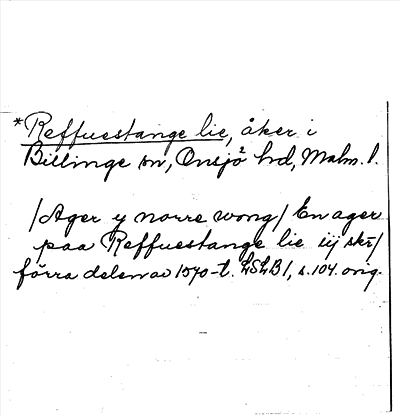 *Reffuestange lie, åker i
Billinge sn, Onsjö hd, Malm. l.
/Ager y norre wong/ En ager
paa Reffuestange lie iij skr/
förra delen av 1570-t. LSLB 1, s. 104. orig.